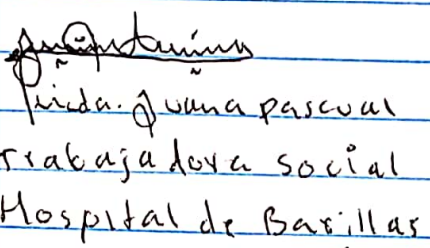 Licda. Juana pascual
trabajadora social
Hospital de Barillas